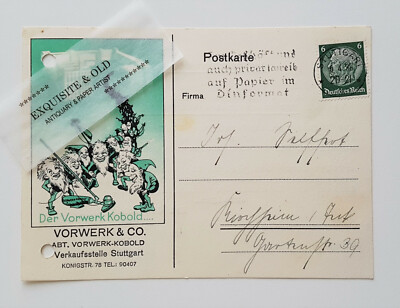 EXQUISITE & OLD
ANTIQUARY & PAPER ARTIST
Der Vorwerk Kobold....
VORWERK & CO.
ABT. VORWERK-KOBOLD
Verkaufsstelle Stuttgart
KÖNIGSTR. 78 TEL.: 90407
Postkarte
auch privat schreib
auf Papier im
Dinformat
Firma
6
6
Deutsches Reich
Jos.
Kirchheim
Gartenstr. 39